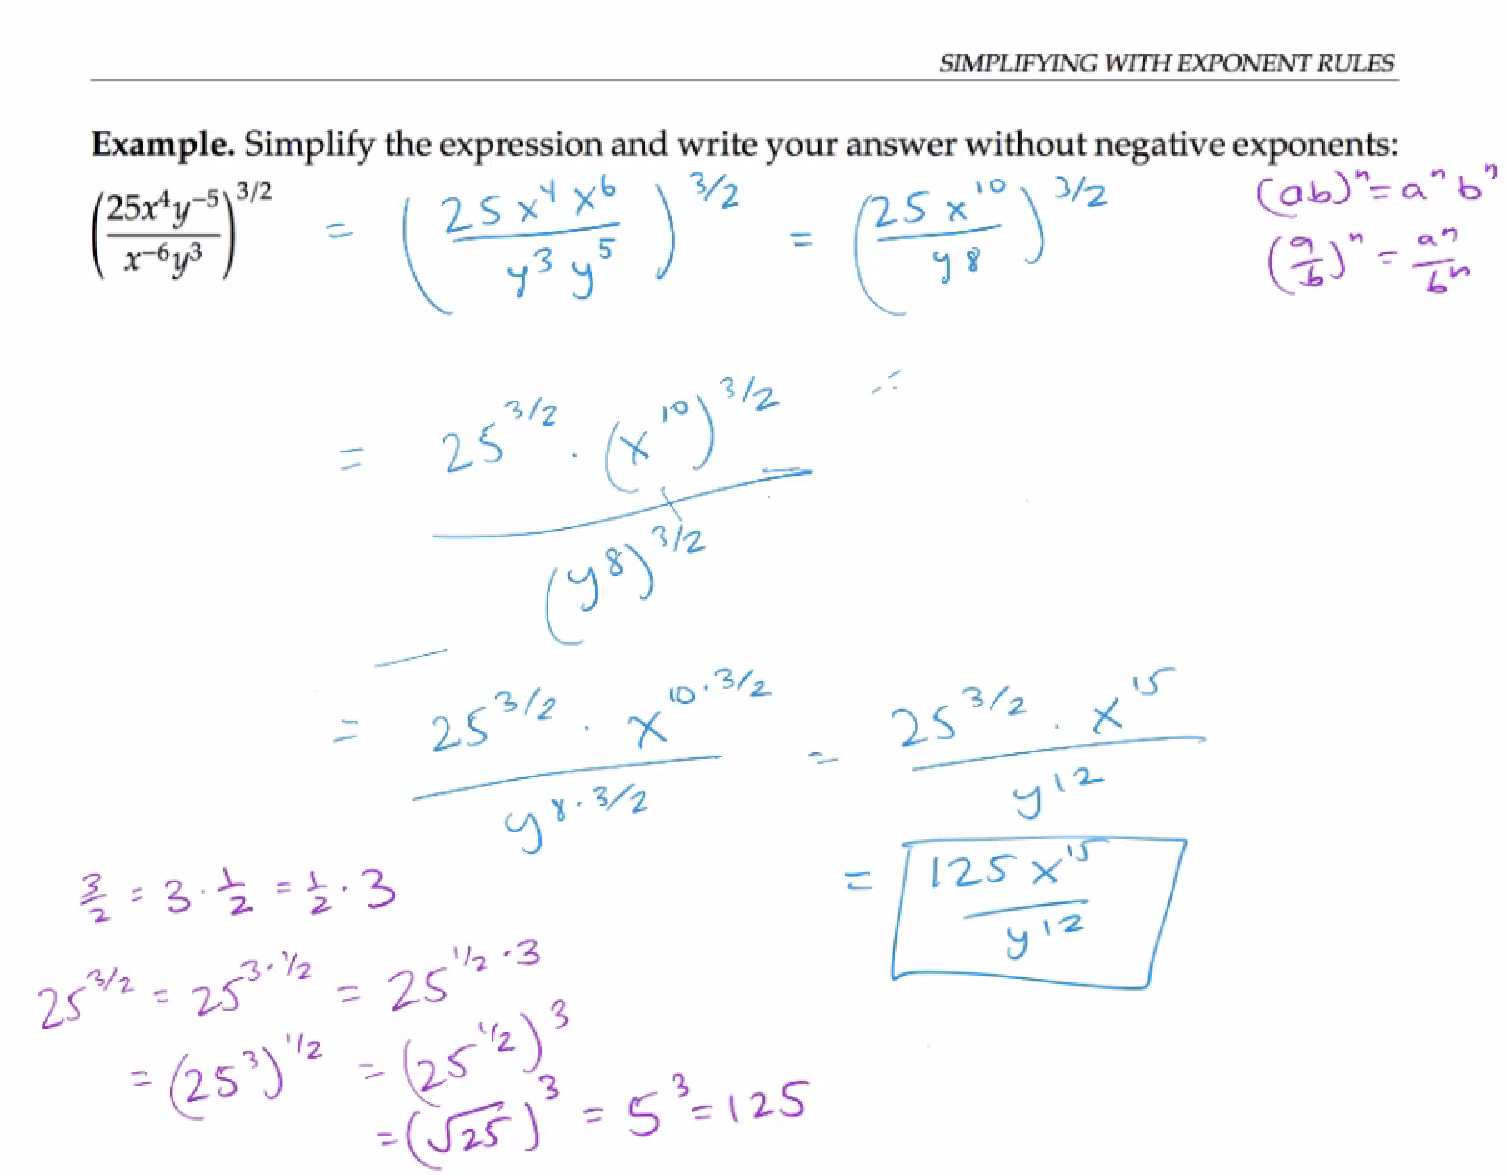 SIMPLIFYING WITH EXPONENT RULES
Example. Simplify the expression and write your answer without negative exponents:
(25x⁴y⁻⁵ / x⁻⁶y³)^3/2 = (25 x⁴ x⁶ / y³ y⁵)^3/2 = (25 x¹⁰ / y⁸)^3/2
(ab)ⁿ = aⁿ bⁿ
(a/b)ⁿ = aⁿ/bⁿ
= 25^3/2 · (x¹⁰)^3/2 / (y⁸)^3/2 =
= 25^3/2 · x^10·3/2 / y^8·3/2 = 25^3/2 · x¹⁵ / y¹²
= 125 x¹⁵ / y¹²
3/2 = 3 · 1/2 = 1/2 · 3
25^3/2 = 25^3·1/2 = 25^1/2·3
= (25³)^1/2 = (25^1/2)³
= (√25)³ = 5³ = 125